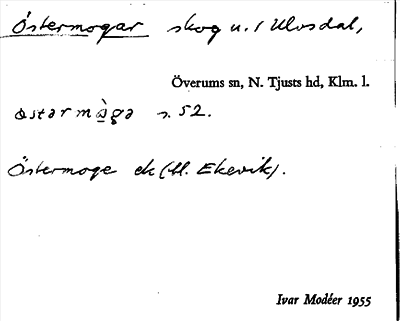 Östermogar skog u. / Ulvsdal,
Överums sn, N. Tjusts hd, Klm. l.
östərmògə s. 52.
Östermoge ek (St. Ekevik).
Ivar Modéer 1955